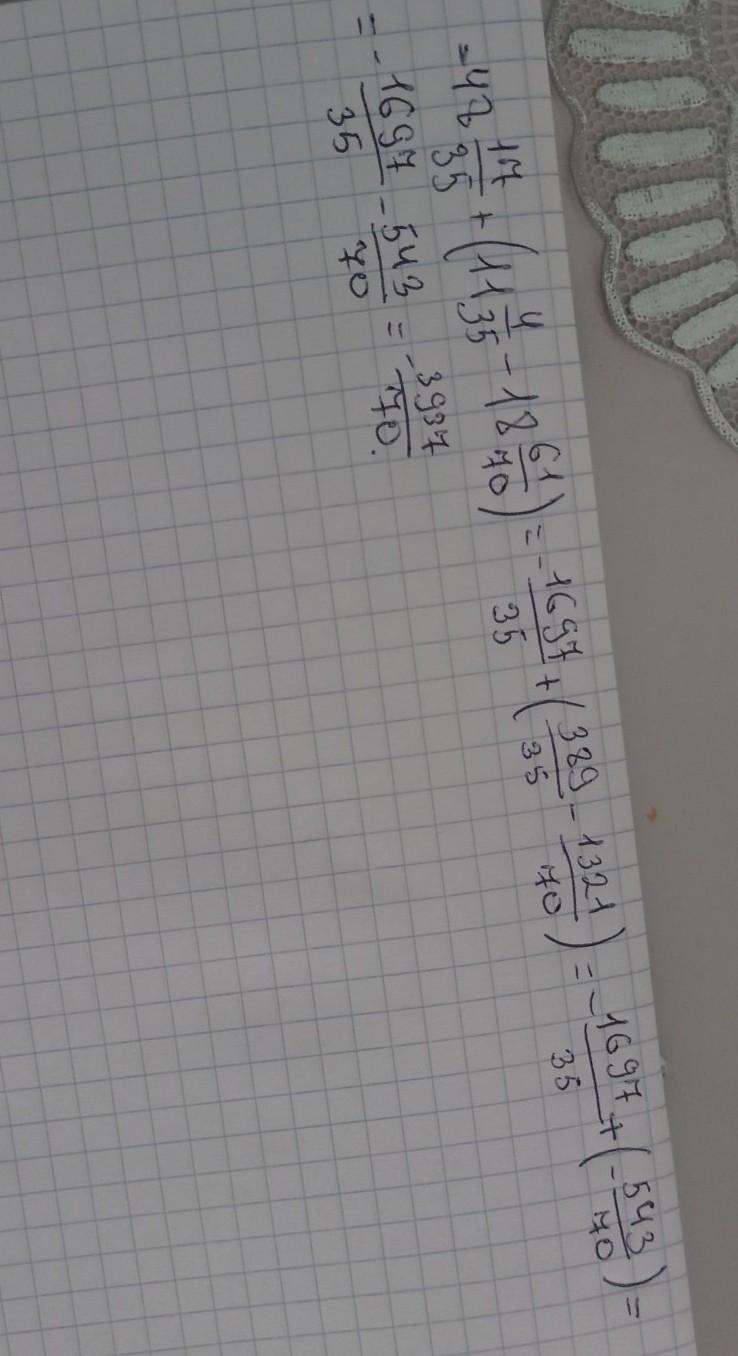 -48 17/35 + (11 4/35 - 18 61/70) = -1697/35 + (389/35 - 1321/70) = -1697/35 + (-543/70) =
= -1697/35 - 543/70 = -3937/70.